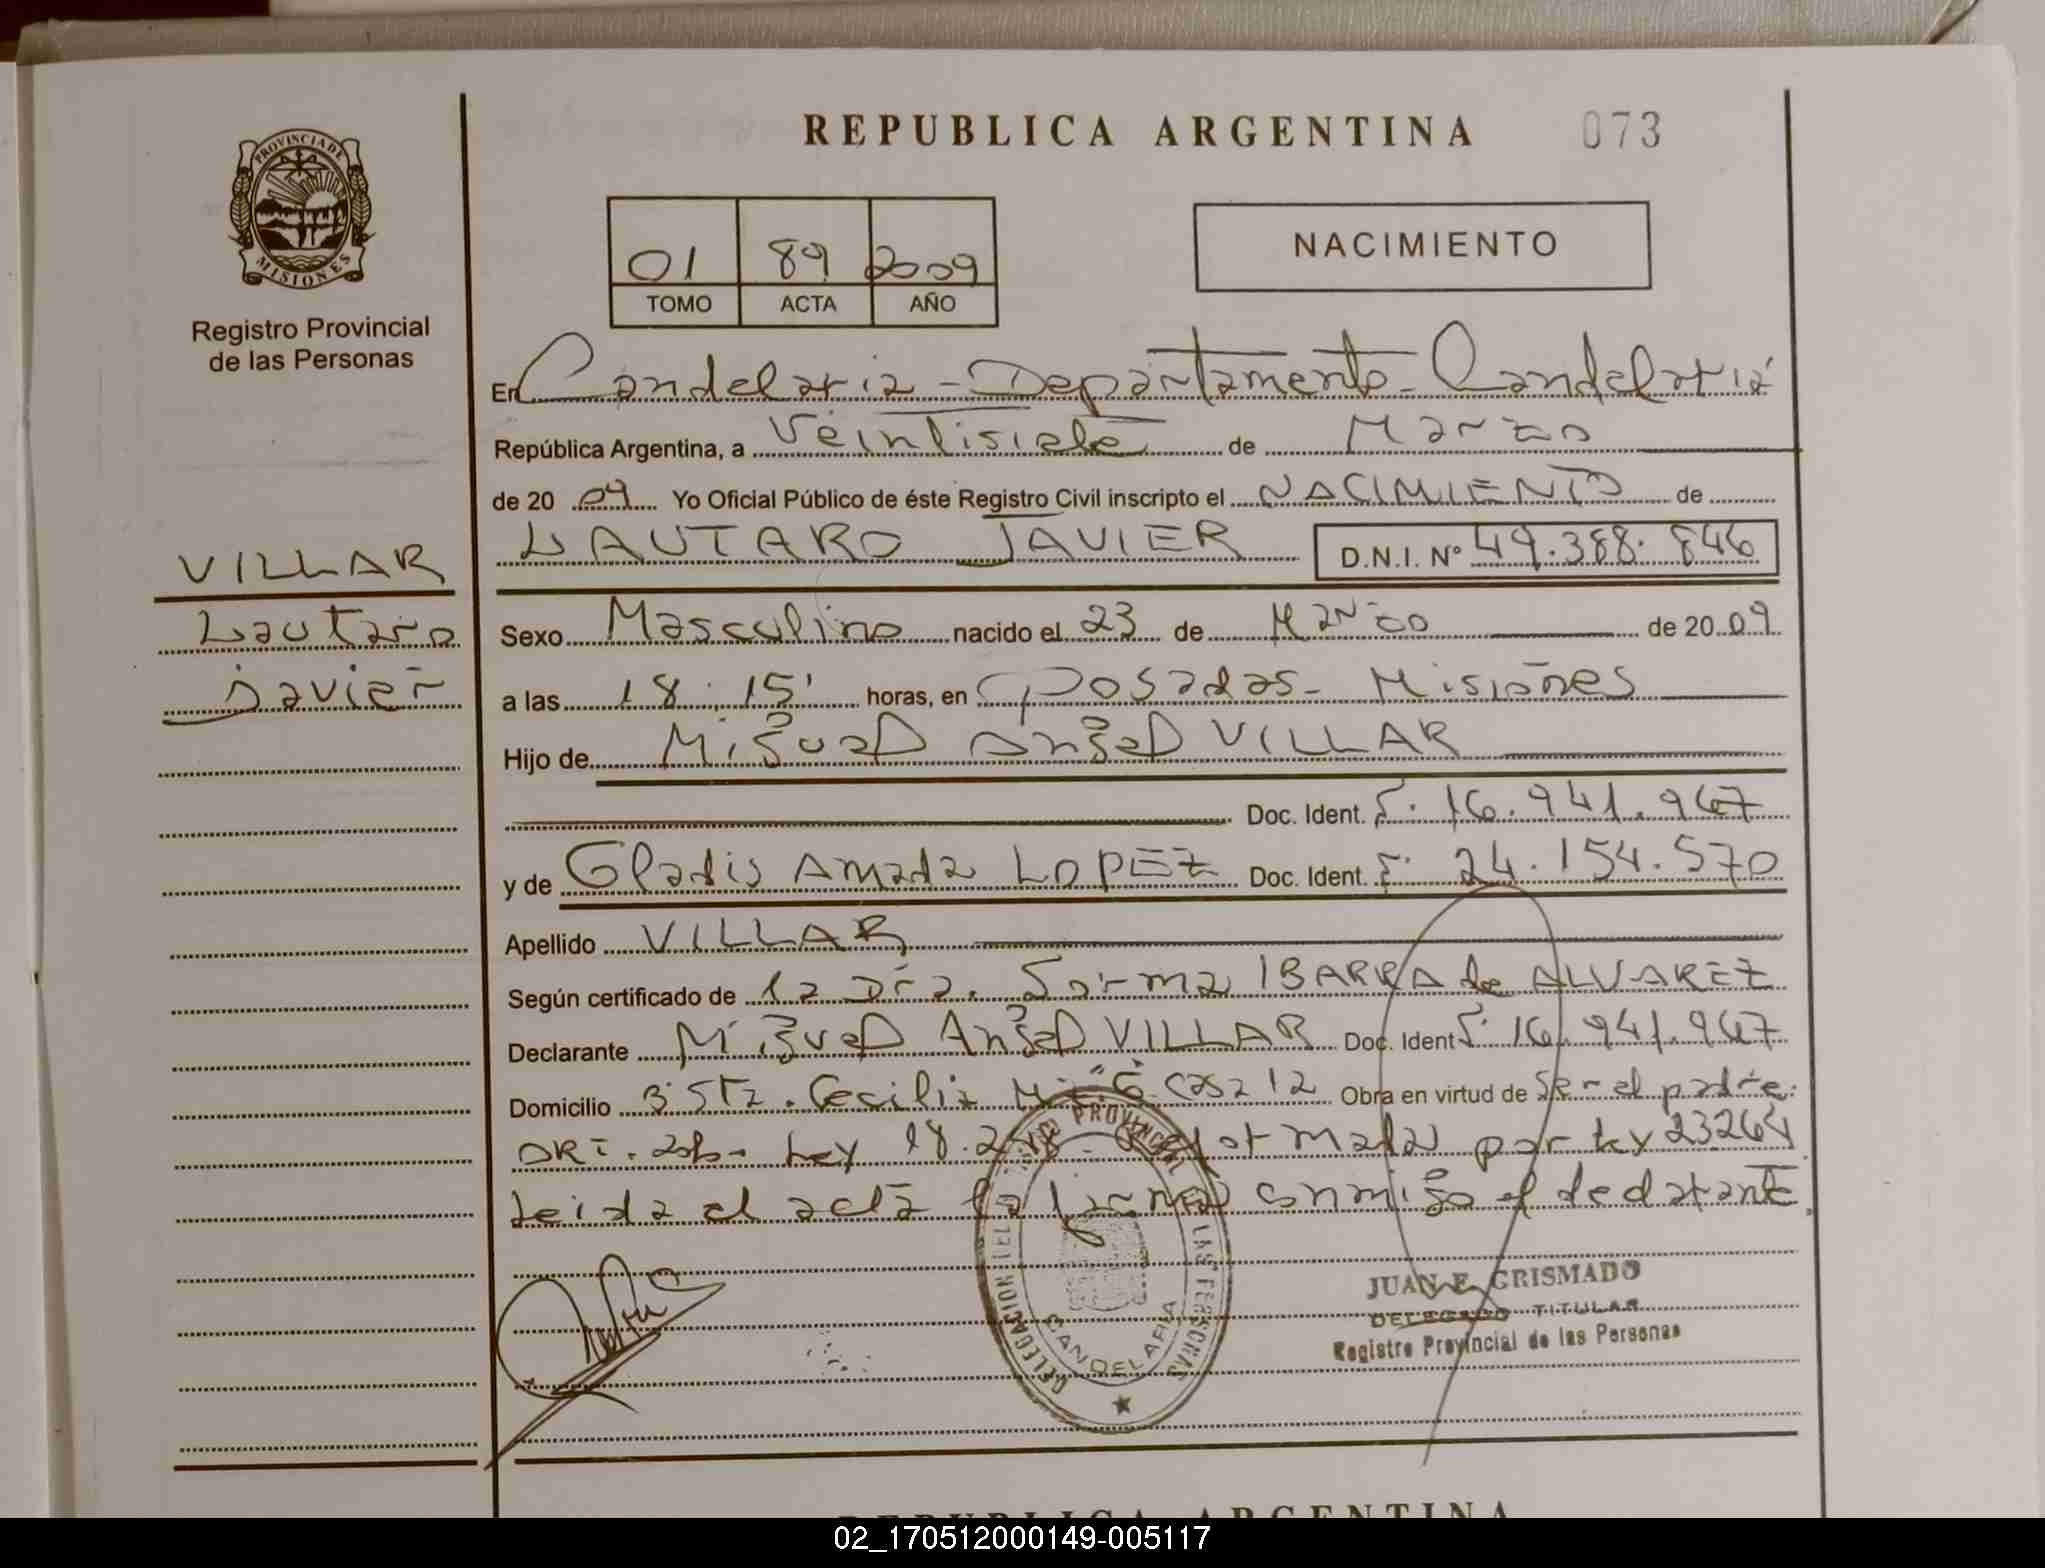 REPUBLICA ARGENTINA 073
PROVINCIA DE
MISIONES
Registro Provincial
de las Personas
01 89 2009
TOMO ACTA AÑO
NACIMIENTO
En Candelaria - Departamento - Candelaria
República Argentina, a Veintisiete de Marzo
de 20 09 Yo Oficial Público de éste Registro Civil inscripto el NACIMIENTO de
LAUTARO JAVIER D.N.I. Nº 49.388.846
VILLAR
Lautaro
Javier
Sexo Masculino nacido el 23 de Marzo de 20 09
a las 18:15' horas, en Posadas - Misiones
Hijo de Miguel Angel VILLAR
Doc. Ident. 16.941.967
y de Gladis Amada LOPEZ Doc. Ident. 24.154.570
Apellido VILLAR
Según certificado de la Dra. Norma IBARRA de ALVAREZ
Declarante Miguel Angel VILLAR Doc. Ident 16.941.967
Domicilio Bº Sta. Cecilia Mz "G" casa 12 Obra en virtud de Ser el padre.
ART. Ley por Ley 23264
Leida el acta la firma conmigo el declarante
DELEGACION DEL REGISTRO PROVINCIAL DE LAS PERSONAS
CANDELARIA
JUAN E. GRISMADO
DELEGADO TITULAR
Registro Provincial de las Personas
REPUBLICA ARGENTINA
02_170512000149-005117